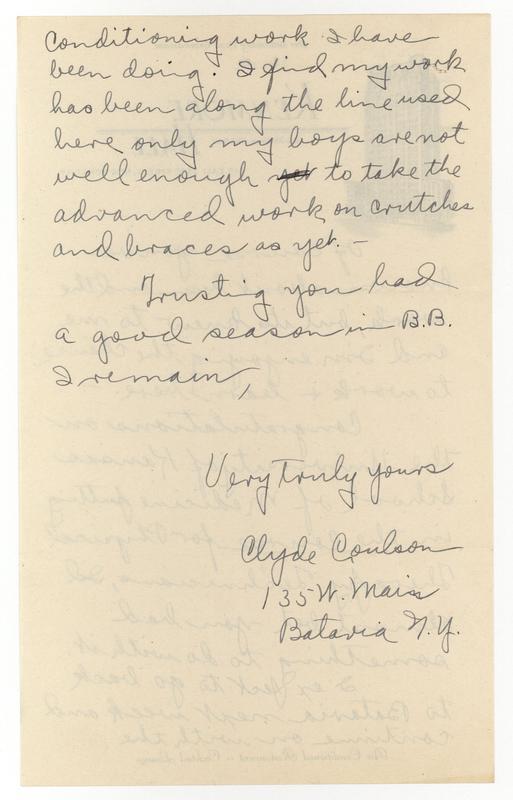 conditioning work I have
been doing. I find my work
has been along the line used
here only my boys are not
well enough yet to take the
advanced work on crutches
and braces as yet. -
Trusting you had
a good season in B.B.
I remain,
Very truly yours
Clyde Coulson
135 W. Main
Batavia N.Y.